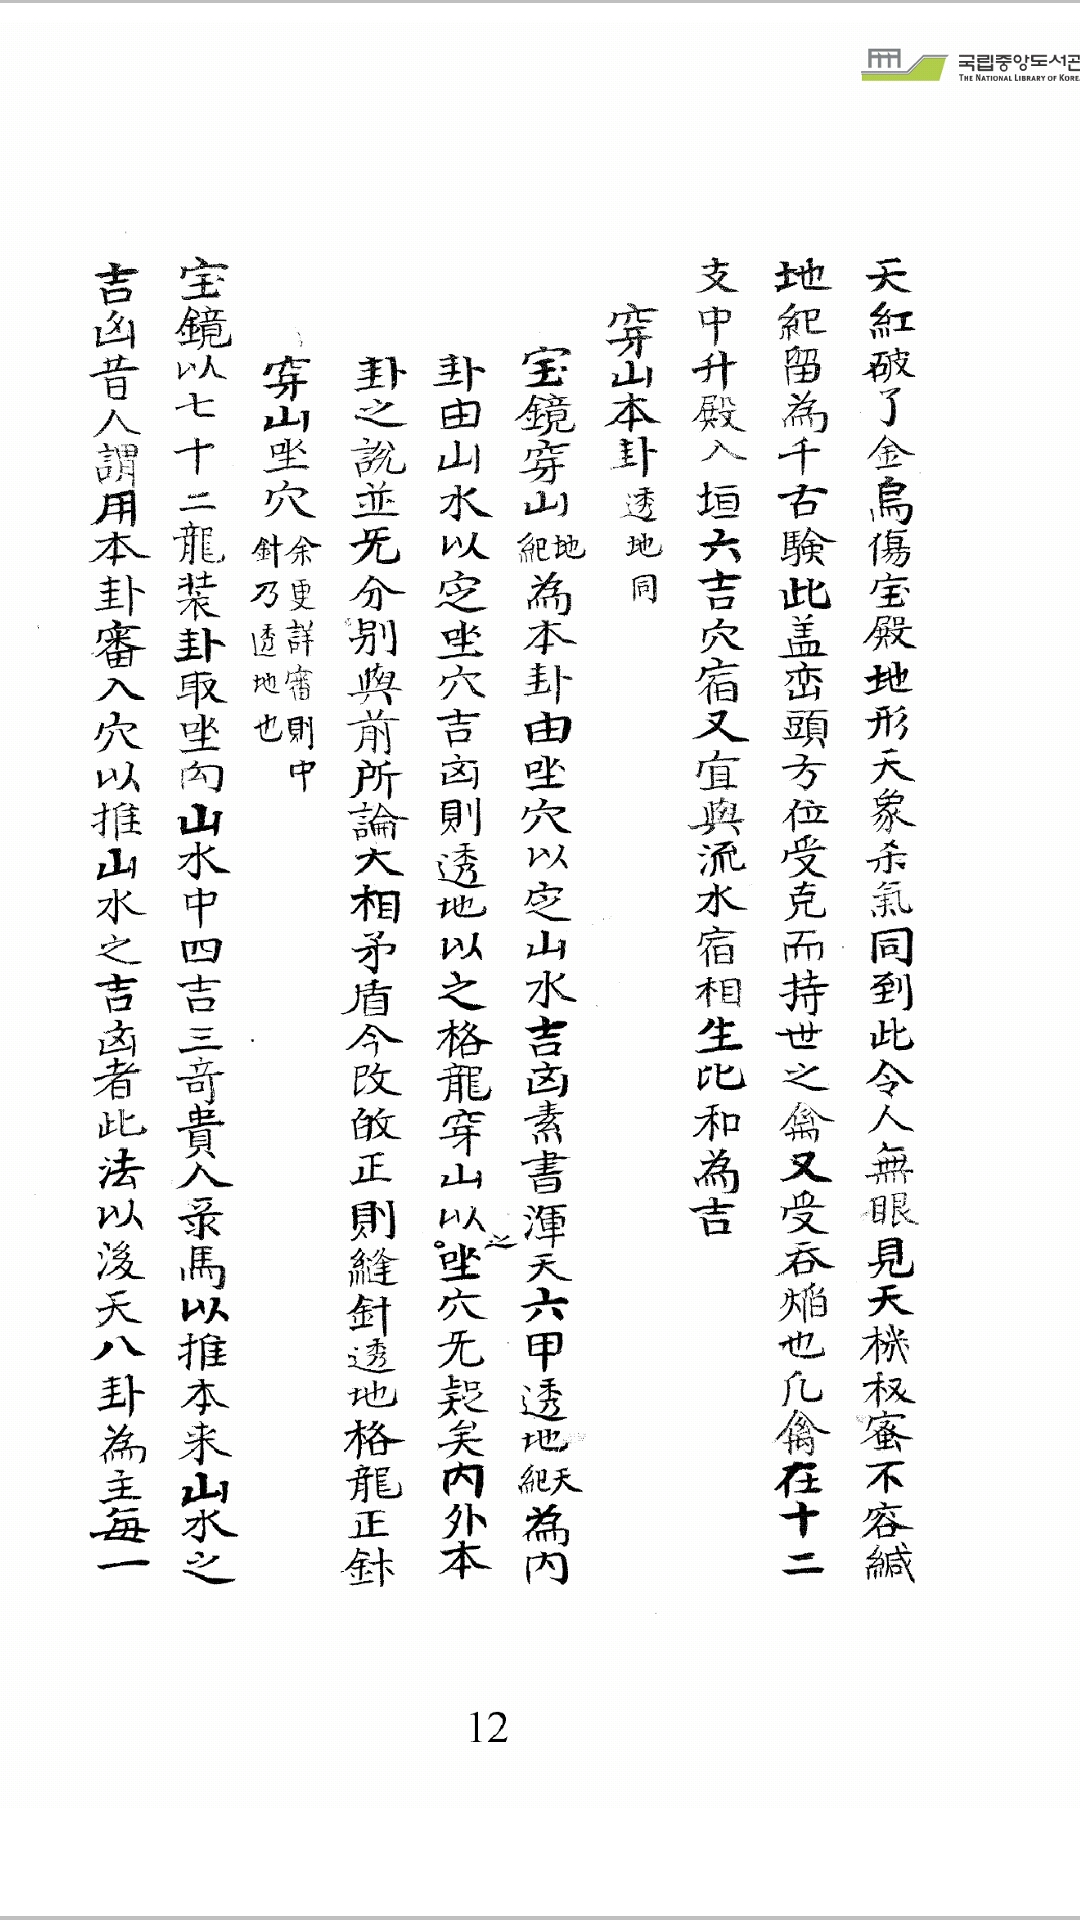 국립중앙도서관
THE NATIONAL LIBRARY OF KOREA
天紅破了金烏傷宝殿地形天象杀氣同到此令人無眼見天機极蜜不容緘
地紀留為千古験此盖峦頭方位受克而持世之禽又受呑焰也凡禽在十二
支中升殿入垣六吉穴宿又宜與流水宿相生比和為吉
穿山本卦透地同
宝鏡穿山地紀為本卦由坐穴以定山水吉凶素書渾天六甲透地天紀為内
卦由山水以定坐穴吉凶則透地以之格龍穿山以之坐穴旡疑矣内外本
卦之説並旡分别與前所論大相矛盾今改的正則縫針透地格龍正針
穿山坐穴余更詳審則中針乃透地也
宝鏡以七十二龍装卦取坐向山水中四吉三奇貴人录馬以推本来山水之
吉凶昔人謂用本卦審入穴以推山水之吉凶者此法以後天八卦為主每一
12